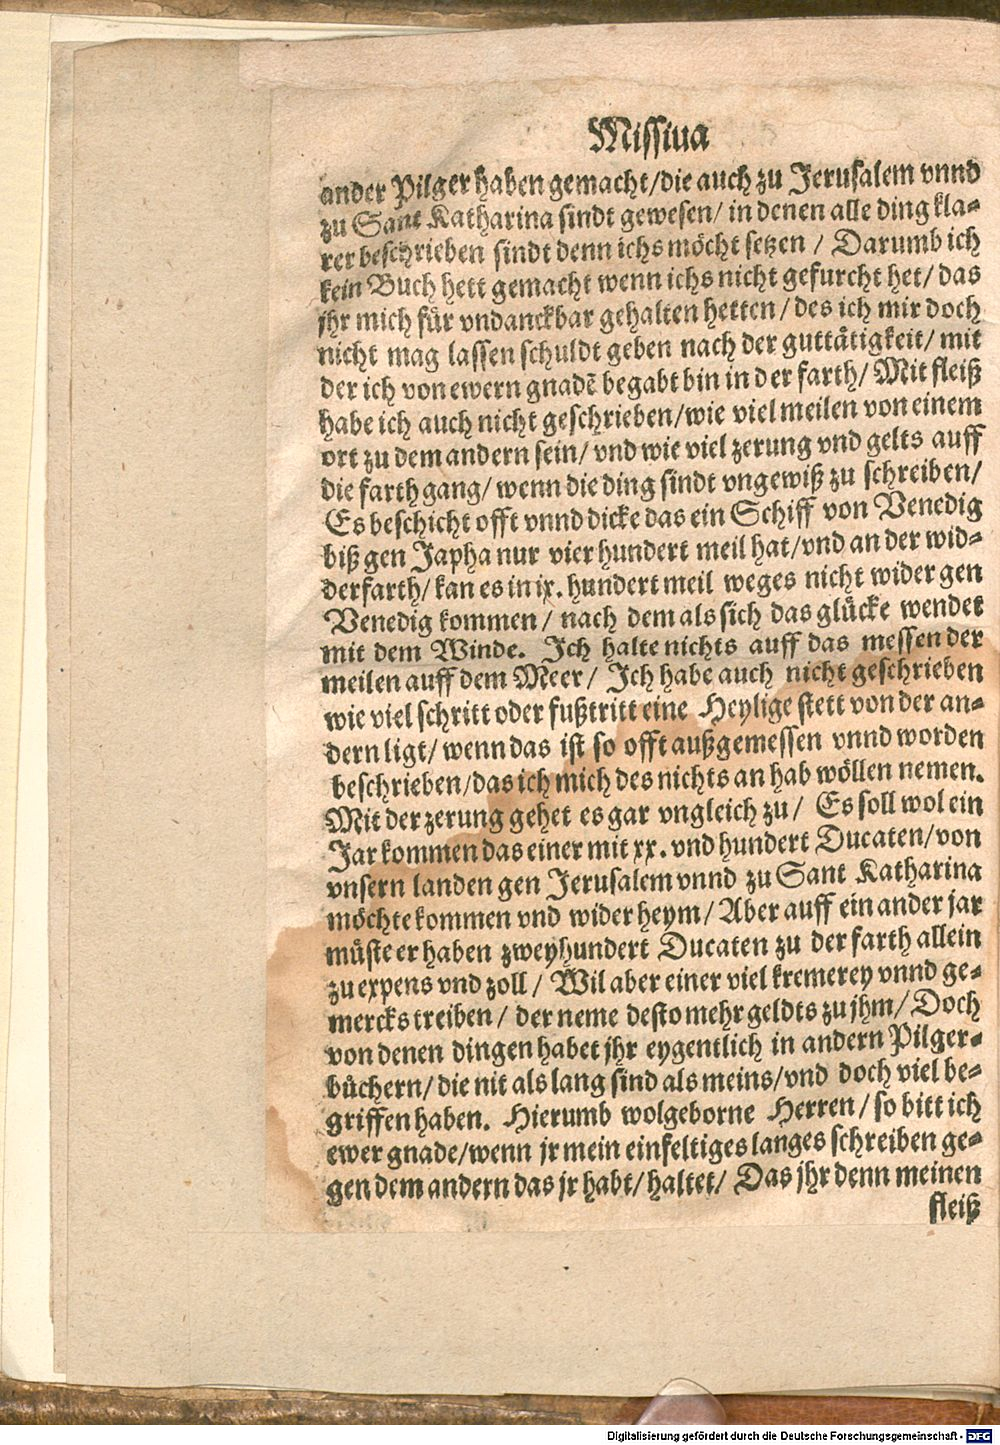 Missiua
ander Pilger haben gemacht/die auch zu Jerusalem vnnd
zu Sant Katharina sindt gewesen/ in denen alle ding kla-
rer beschrieben sindt denn ichs möcht setzen / Darumb ich
kein Buch hett gemacht wenn ichs nicht gefurcht het/ das
jhr mich für vndanckbar gehalten hetten/ des ich mir doch
nicht mag lassen schuldt geben nach der guttätigkeit/ mit
der ich von ewern gnadẽ begabt bin in der farth/ Mit fleiß
habe ich auch nicht geschrieben/wie viel meilen von einem
ort zu dem andern sein/ vnd wie viel zerung vnd gelts auff
die farth gang/ wenn die ding sindt vngewiß zu schreiben/
Es beschicht offt vnnd dicke das ein Schiff von Venedig
biß gen Japha nur vier hundert meil hat/vnd an der wid-
derfarth/ kan es in ix. hundert meil weges nicht wider gen
Venedig kommen/ nach dem als sich das glücke wendet
mit dem Winde. Ich halte nichts auff das messen der
meilen auff dem Meer/ Ich habe auch nicht geschrieben
wie viel schritt oder fußtritt eine Heylige stett von der an-
dern ligt/ wenn das ist so offt außgemessen vnnd worden
beschrieben/das ich mich des nichts an hab wöllen nemen.
Mit der zerung gehet es gar vngleich zu/ Es soll wol ein
Jar kommen das einer mit xx. vnd hundert Ducaten/von
vnsern landen gen Jerusalem vnnd zu Sant Katharina
möchte kommen vnd wider heym/ Aber auff ein ander jar
müste er haben zweyhundert Ducaten zu der farth allein
zu expens vnd zoll / Wil aber einer viel kremerey vnnd ge-
mercks treiben/ der neme desto mehr geldts zu jhm/ Doch
von denen dingen habet jhr eygentlich in andern Pilger-
büchern/ die nit als lang sind als meins/vnd doch viel be-
griffen haben. Hierumb wolgeborne Herren/ so bitt ich
ewer gnade/wenn jr mein einfeltiges langes schreiben ge-
gen dem andern das jr habt/ haltet/ Das jhr denn meinen
fleiß
Digitalisierung gefördert durch die Deutsche Forschungsgemeinschaft - DFG